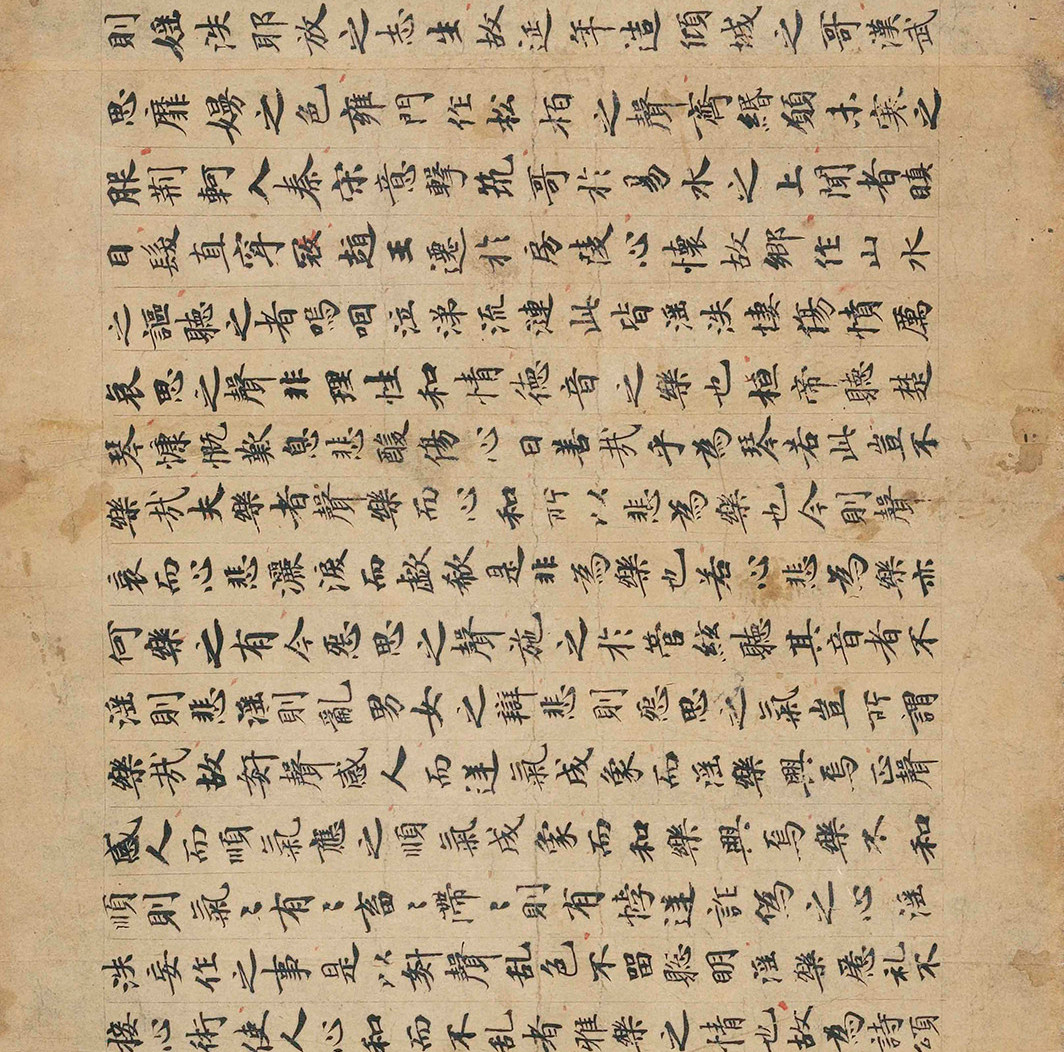 則婬泆耶放之志生故延年造傾城之哥漢武
思靡嫚之色雍門作松栢之聲齊緡願未寒之
服荊軻入秦宋意擊筑哥於易水之上聞者瞋
目髮直穿冠趙王遷於房陵心懷故鄉作山水
之謳聽之者嗚咽泣涕流漣此皆滛泆悽傷憤厲
哀思之聲非理性和情德音之樂也桓帝聽楚
琴慷慨歎息悲酸傷心曰善哉乎為琴若此豈不
樂哉夫樂者聲樂而心和所以悲為樂也今則聲
哀而心悲灑淚而歔欷是非為樂也若心悲為樂亦
何樂之有今怨思之聲施之於管絃聽其音者不
滛則悲滛則亂男女之辯悲則怨思之氣豈所謂
樂哉故姧聲感人而逆氣成象而滛樂興焉正聲
感人而順氣應之順氣成象而和樂興焉樂不和
順則氣〻有〻畜〻滯〻則有悖逆詐偽之心滛
泆妄作之事是以姧聲乱色不留聡明滛樂慝礼不
接心術使人心和而不乱者雅樂之情也故為詩頌